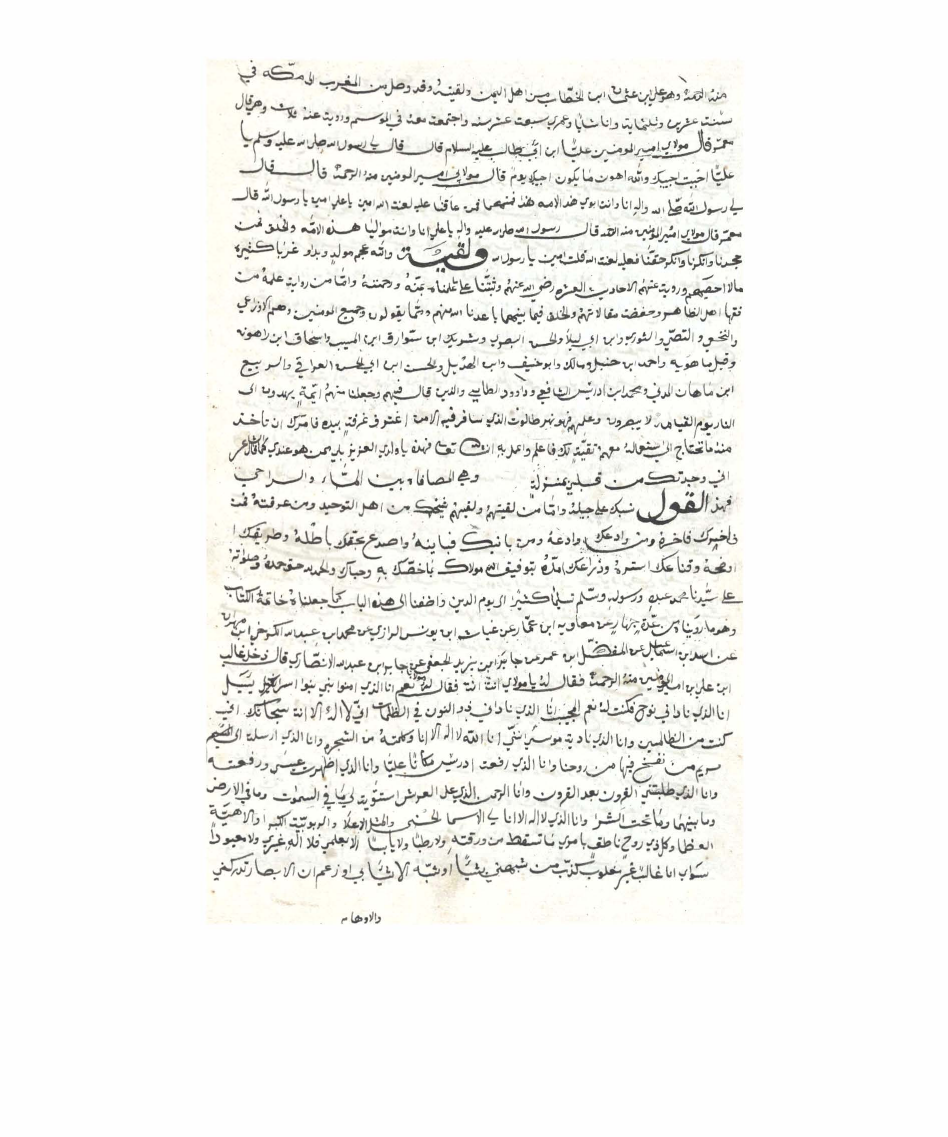 منه الرحمة وهو علي ابن عثمان ابن الخطاب من اهل اليمن ولقيته وقد وصل من المغرب الى مكه في
سنت عشرين وثلثماية وانا شابا وعمري سبعت عشر سنه واجتمعت معه في الموسم ورويت عنه ثلاث وهي قال
معمر قال مولاي امير المومنين عليا ابن ابي طالب عليه السلام قال قال لي رسول الله صلى الله عليه وسلم يا
عليا احبت احبيك والله اهون ما يكون اجيك يوم قال مولاي امير المومنين منه الرحمة قال قال
لي رسول الله صلى الله واله انا وانت بوي هذه الامه فمن عاقنا عليه لعنت الله امين يا علي امين يا رسول الله قال
معمر قال مولاي امير المومنين منه الرحمة قال رسول الله صلى الله عليه واله يا علي انا وانت مواليا هذه الامه والخلق فمن
جحدنا وانكرنا وانكر حقنا فعليه لعنت الله قلت امين يا رسول الله ولقية والله عجم مولد وبداو عربا كثيرة
مالا احصيهم ورويت عنهم الاحاديث رضي الله عنهم وثبتنا بمنه ورحمته واما من رواية علمه من
فقها اهل الظاهر وحفضت مقالاتهم والخلق فيما بينهما باعدنا الله منهم ومما يقولون وجميع المومنين وهم الاوزاعي
والنخعي و والثوري وابن ابي ليلا والحسن البصري وشريك ابن ابن المسيب واسحاق ابن راهونه
وقيل ماهويه واحمد ابن حنبل ومالك وابو حنيف وابن الهذيل والحسن ابن ابي الحسن العراقي والربيع
ابن ماهان المدني ومحمد ابن ادريس الشافعي وداوود الطايي والذين قال فيهم وجعلنا منهم ايمة يهدون الى
النار يوم القيامه لا يبصرون وعلمهم فهو نهر طالوت الذي سافر فيه الامن اغترف غرفة بيده فامرك ان تاخذ
منه ما تحتاج الى ستعماله معهم تقية لك فاعلم واعمل به ان الله تعالى فهذه يا ولدي العزيز عندي كما قال
اني وجدتك من قبلي بمنزلة وهي المصافاه بين الماء والراحي
فهذ القول سبك على جيله واما من لقيتهم ولقيتهم شيخك من اهل التوحيد ومن عرفته فمن
فاخرك فاخره ومن وادعك وادعه ومن باينك فباينه واصدع بحقك باطله وطريقك ا
اوضحه وقناعك استره وذراعك امدد بتوفيق مولاك ما خصك به وحباك والحمد لله حق حمده وصلوته
على سيدنا محمد عبده ورسوله وسلم تسليما كثيرا الى يوم الدين واضفنا الى هذه الباب كما جعلناه خاتمة الكتاب
وهو ما روينا من عن معاويه ابن عمار عن غياث ابن يونس الرازي عن محمد ابن عبد الله الكرخي ابن مهران
عن اسد ابن اسماعيل عن المفضل ابن عمر عن جابر ابن يزيد الجعفي عن جابر ابن عبد الله الانصاري قال دخل غالب
ابن علي بن امير المومنين منه الرحمة فقال له يا مولاي انت انت فقال له نعم انا الذي امنوا بي بنوا اسرائيل
انا الذي ناداني نوح فكنت له نعم المجيب انا الذي ناداني ذو النون في الظلمات ان لا اله الا انت سبحانك اني
كنت من الظالمين وانا الذي ناديته موسى انني انا الله لا اله الا انا وكلمته من الشجره وانا الذي ارسلت الى
مريم من نفخ فيها من روحنا وانا الذي رفعت ادريس مكانا عليا وانا الذي اظهرت عيسى ورفعته
وانا الذي طلبتني القرون بعد القرون وانا الرحمن الذي على العرش استويت لي ما في السموات وما في الارض
وما بينهما وما تحت الثرا وانا الذي لا اله الا انا لي الاسما الحسنى والمثل الاعلا والربوبية الكبرا والالهية
العظما وكل ذي روح ناطق بامري ما تسقط من ورقته ولا رطبا ولا يابسا الا بعلمي فلا اله غيري ولا معبودا
سواي انا غالب غير مغلوب كذب من شبهني بشيا او شبه الاشيا بي او زعم ان الابصار تدركني
والاوهام